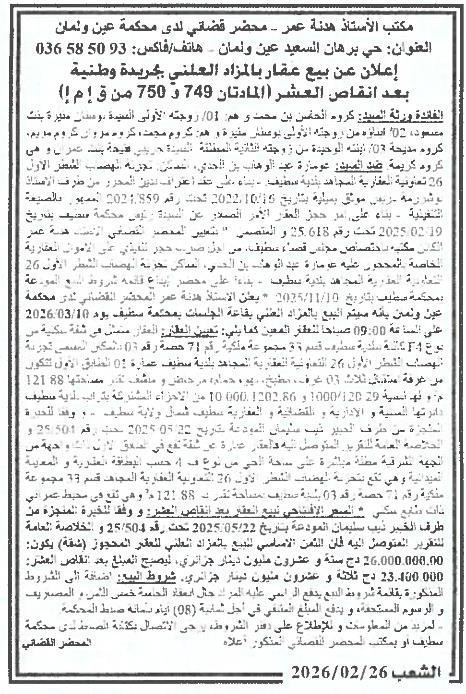 مكتب الأستاذ هدنة عمر - محضر قضائي لدى محكمة عين ولمان
العنوان: حي برهان السعيد عين ولمان - هاتف/فاكس: 93 50 58 036
إعلان عن بيع عقار بالمزاد العلني بجريدة وطنية
بعد انقاص العشر (المادتان 749 و 750 من ق إ م إ)
لفائدة ورثة السيد: كروم الخامس بن محمد و هم: 01/ زوجته الأولى السيدة بوصفار منيرة بنت
مسعود، 02/ أبناؤه من زوجته الأولى بوصفار منيرة و هم: كروم محمد، كروم مروان، كروم مريم،
كروم مديحة 03/ ابنته الوحيدة من زوجته الثانية المطلقة السيدة فتيحة بنت عمران و هي
كروم كريمة. ضد السيد: عومارة عبد الوهاب بن الحدي، الساكن تجزئة الهضاب الشطر الأول
26 تعاونية العقارية المجاهد بلدية سطيف - بناء على عقد اعتراف بدين المحرر من طرف الأستاذ
موثق بميلة بتاريخ 2022/10/16 تحت رقم 2024.859 الممهور بالصيغة
التنفيذية - بناء على أمر حجز العقار الأمر الصادر عن السيد رئيس محكمة سطيف بتاريخ
2025/02/19 تحت رقم 25.618 و المتضمن المحضر القضائي الأستاذ هدنة عمر
الكائن مكتبه باختصاص مجلس قضاء سطيف، من أجل ضرب حجز تنفيذي على الأموال العقارية
الخاصة بالمحجوز عليه عومارة عبد الوهاب بن الحدي، الساكن تجزئة الهضاب الشطر الأول 26
التعاونية العقارية المجاهد بلدية سطيف - بناء على محضر إيداع قائمة شروط البيع المودعة
بمحكمة سطيف بتاريخ 2025/11/10 * يعلن الأستاذ هدنة عمر المحضر القضائي لدى محكمة
عين ولمان بأنه سيتم البيع بالمزاد العلني بقاعة الجلسات بمحكمة سطيف يوم 2026/03/10
على الساعة 09:00 صباحا للعقار المعين كما يلي: تعيين العقار: العقار متمثل في شقة سكنية من
نوع F4 كائنة ببلدية سطيف قسم 33 مجموعة ملكية رقم 71 حصة رقم 03: المكان المسمى تجزئة
الهضاب الشطر الأول 26 التعاونية العقارية المجاهد بلدية سطيف عمارة 01 الطابق الأول تتكون
من غرفة استقبال ثلاث 03 غرف، مطبخ، بهو، حمام، مرحاض و منشف تقدر مساحتها 121.88
م² و لها نسبة 1000/120.29 و 10.000/1202.86 من الأجزاء المشتركة بتراب بلدية سطيف
دائرتها المدنية و الإدارية و القضائية و العقارية سطيف شمال ولاية سطيف - و وفقا للخبرة
المنجزة من طرف الخبير نيب سليمان المودعة بتاريخ 2025/05/22 تحت رقم 25/504 و
الخلاصة العامة للتقرير المتوصل إليه فالعقار عبارة عن شقة تقع في الطابق الأول ذات واجهة من
الجهة الشرقية مطلة مباشرة على ساحة الحي من نوع ف 4 حسب البطاقة العقارية و المعاينة
الميدانية وهي تقع بتجزئة الهضاب الشطر الأول 26 التعاونية العقارية المجاهد قسم 33 مجموعة
ملكية رقم 71 حصة رقم 03 بلدية سطيف مساحة تقدر بـ 121.88 م² و هي تقع في محيط عمراني
ذات طابع سكني. * السعر الافتتاحي لبيع العقار بعد انقاص العشر: و وفقا للخبرة المنجزة من
طرف الخبير نيب سليمان المودعة بتاريخ 2025/05/22 تحت رقم 25/504 و الخلاصة العامة
للتقرير المتوصل إليه فان الثمن الأساسي للبيع بالمزاد العلني للعقار المحجوز (شقة) يكون:
26.000.000.00 دج ستة و عشرون مليون دينار جزائري، ليصبح المبلغ بعد انقاص العشر:
23.400.000 دج ثلاثة و عشرون مليون دينار جزائري. شروط البيع: إضافة إلى الشروط
المذكورة بقائمة شروط البيع يدفع الراسي عليه المزاد حال انعقاد الجلسة خمس الثمن و المصاريف
و الرسوم المستحقة، و يدفع المبلغ المتبقي في أجل ثمانية (08) أيام بأمانة ضبط المحكمة.
- لمزيد من المعلومات و للإطلاع على دفتر الشروط، يرجى الاتصال بأمانة الضبط لدى محكمة
سطيف أو بمكتب المحضر القضائي المذكور أعلاه
المحضر القضائي
الشعب 2026/02/26